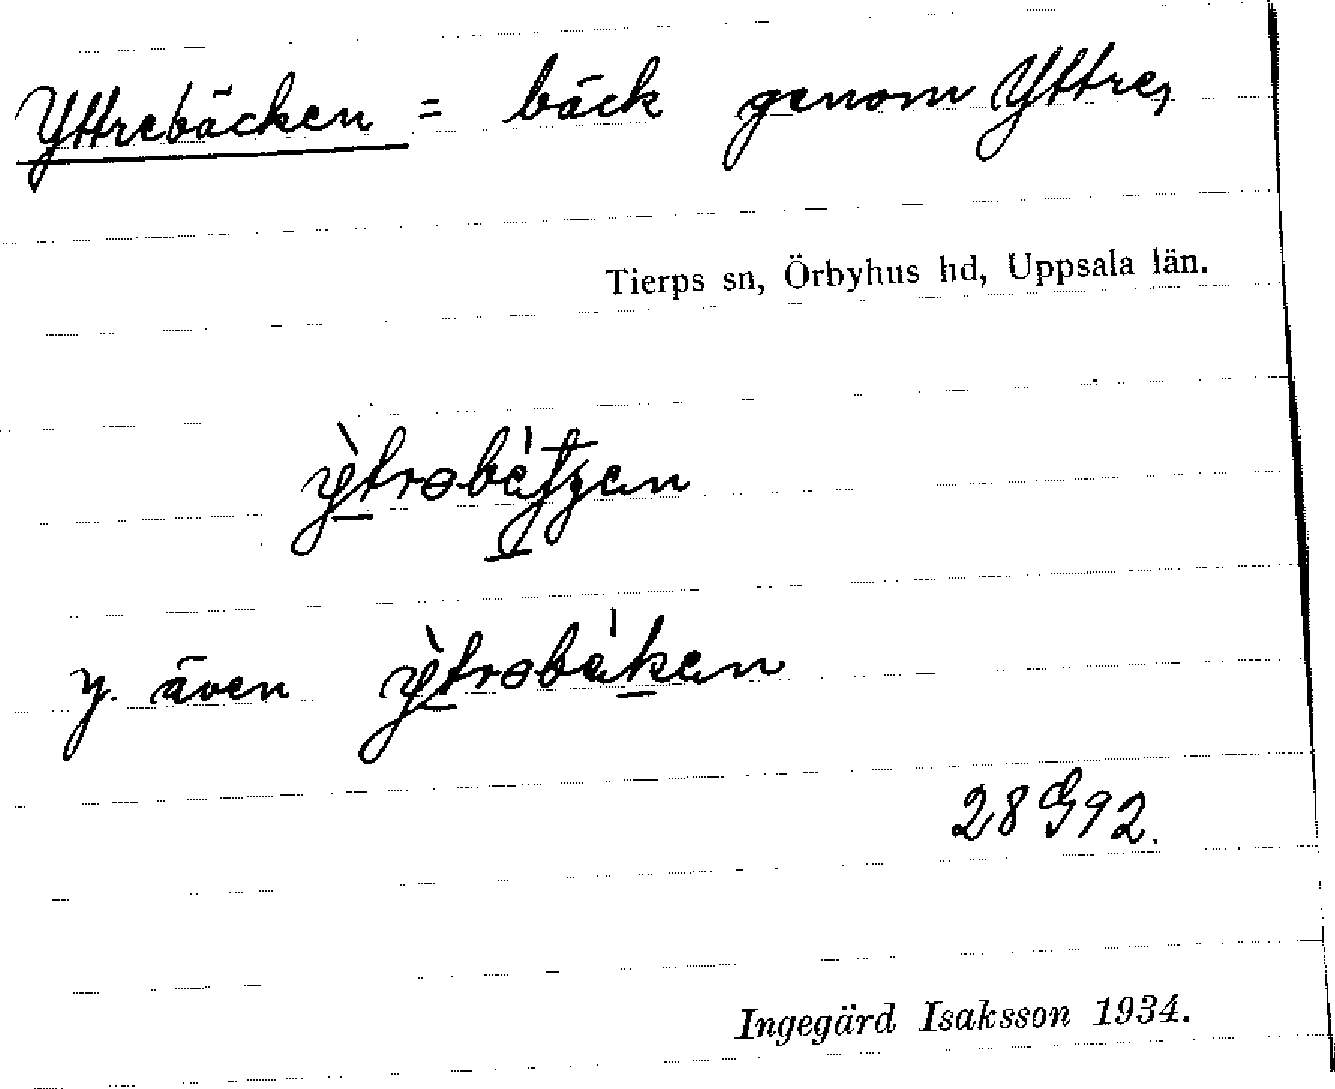 Yttrebäcken = bäck genom Yttre,
Tierps sn, Örbyhus hd, Uppsala län.
y. även
28 G 92.
Ingegärd Isaksson 1934.